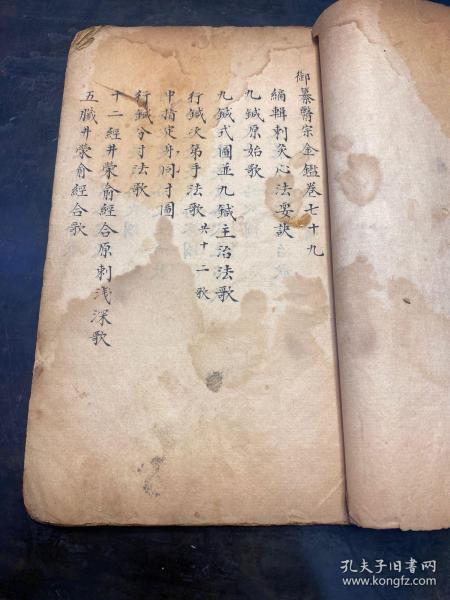 御纂醫宗金鑑卷七十九
編輯刺灸心法要訣
九鍼原始歌
九鍼式圖並九鍼主治法歌
行鍼次第手法歌 共十二歌
中指定同身寸圖
行鍼分寸法歌
十二經井滎俞經合原刺淺深歌
五臟井滎俞經合歌
孔夫子旧书网
www.kongfz.com